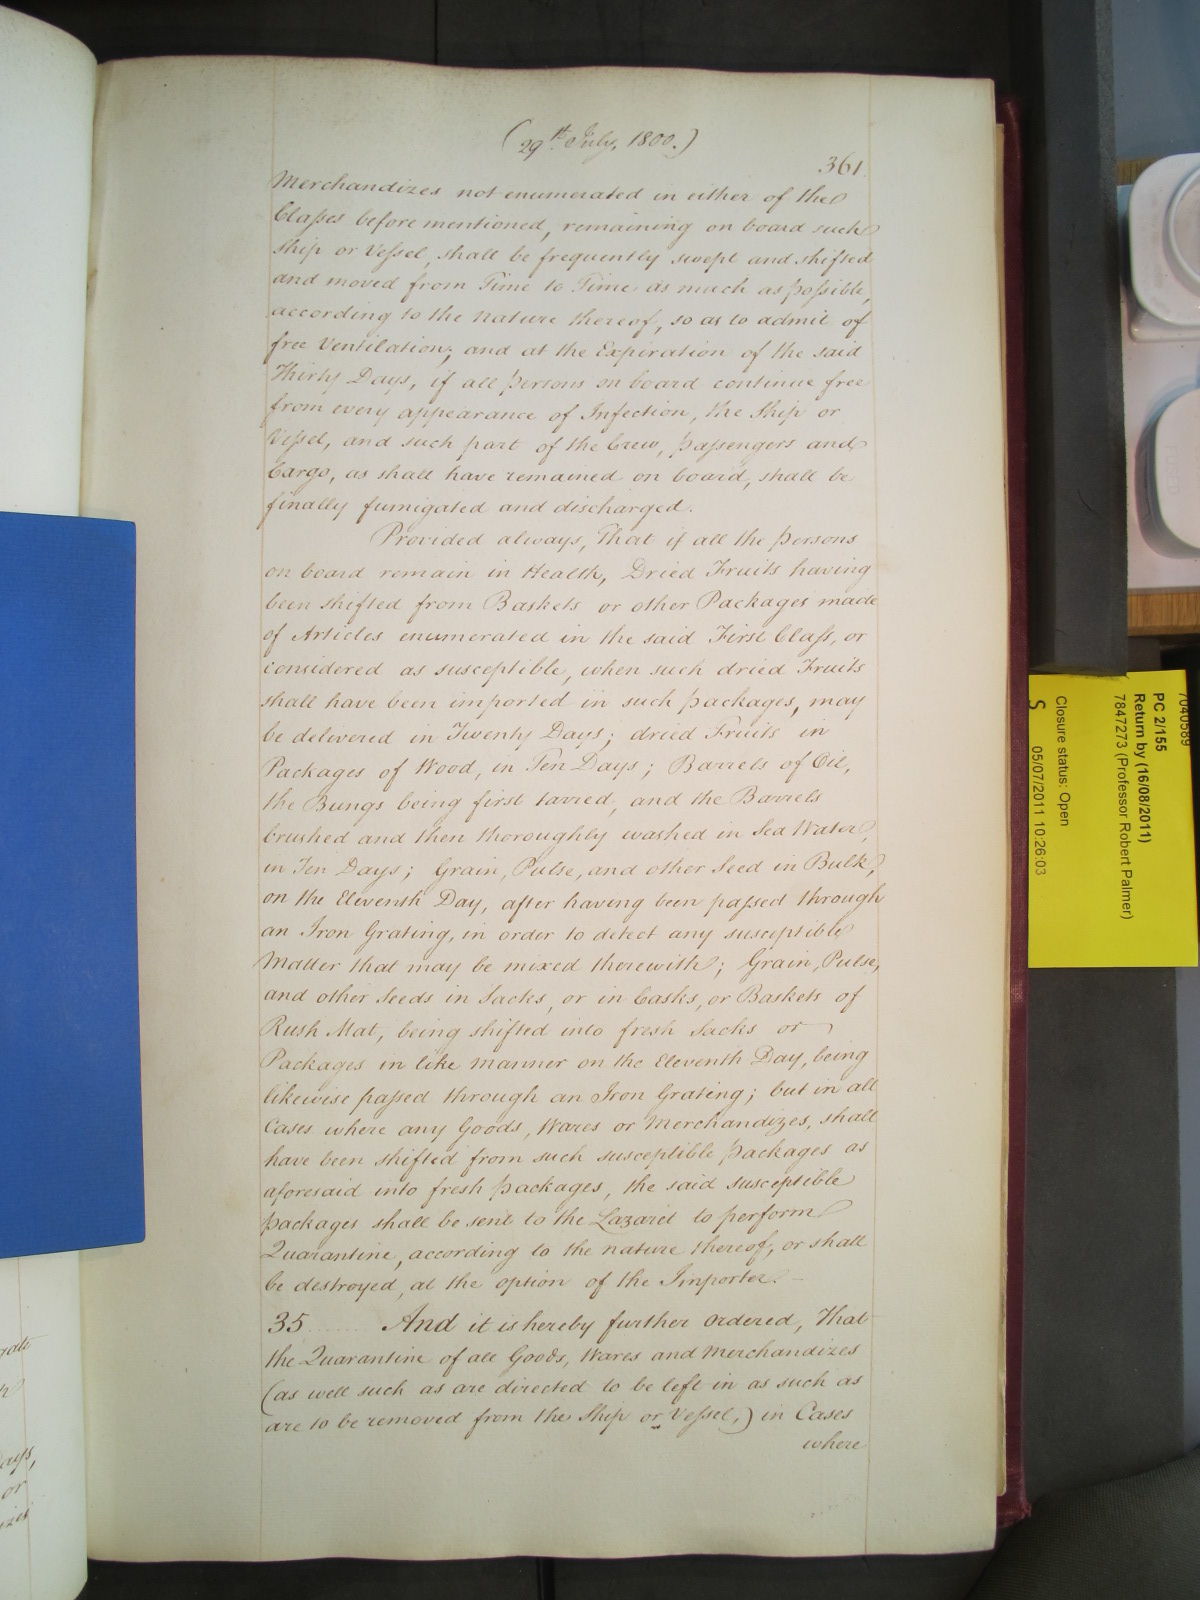 (29th. July, 1800.)
361.
Merchandizes not enumerated in either of the
Classes before mentioned, remaining on board such
Ship or Vessel, shall be frequently swept and shifted
and moved from Time to Time as much as possible,
according to the nature thereof, so as to admit of
free Ventilation; and at the Expiration of the said
Thirty Days, if all persons on board continue free
from every appearance of Infection, the Ship or
Vessel, and such part of the Crew, passengers and
Cargo, as shall have remained on board, shall be
finally fumigated and discharged.
Provided always, That if all the persons
on board remain in Health, Dried Fruits having
been shifted from Baskets or other Packages made
of Articles enumerated in the said First Class, or
considered as susceptible, when such dried Fruits
shall have been imported in such packages, may
be delivered in Twenty Days; dried Fruits in
Packages of Wood, in Ten Days; Barrels of Oil,
the Bungs being first tarred, and the Barrels
brushed and then thoroughly washed in Sea Water,
in Ten Days; Grain, Pulse, and other Seed in Bulk,
on the Eleventh Day, after having been passed through
an Iron Grating, in order to detect any susceptible
Matter that may be mixed therewith; Grain, Pulse,
and other Seeds in Sacks, or in Casks, or Baskets of
Rush Mat, being shifted into fresh Sacks or
Packages in like manner on the Eleventh Day, being
likewise passed through an Iron Grating; but in all
Cases where any Goods, Wares or Merchandizes, shall
have been shifted from such susceptible packages as
aforesaid into fresh packages, the said susceptible
packages shall be sent to the Lazaret to perform
Quarantine, according to the nature thereof, or shall
be destroyed, at the option of the Importer. -
35 ...... And it is hereby further Ordered, That
the Quarantine of all Goods, Wares and Merchandizes
(as well such as are directed to be left in as such as
are to be removed from the Ship or Vessel,) in Cases
where
ays,
or
izes
7040589
PC 2/155
Return by (16/08/2011)
7847273 (Professor Robert Palmer)
Closure status: Open
S
05/07/2011 10:26:03